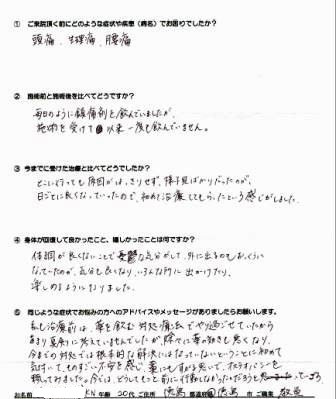 ① ご来院頂く前にどのような症状や疾患（病名）でお困りでしたか？
頭痛、生理痛、腰痛
② 施術前と施術後を比べてどうですか？
毎日のように鎮痛剤を飲んでいましたが、
施術を受けて以来一度も飲んでいません。
③ 今までに受けた治療と比べてどうでしたか？
どこに行っても原因がはっきりせず、様子見ばかりだったのが、
日ごとに良くなっていったので、初めて治療してもらったという感じがしました。
④ 身体が回復して良かったこと、嬉しかったことは何ですか？
体調が良くないことで憂鬱な気分がして、外に出るのもおっくうに
なっていたのが、気分も良くなり、いろんな所に出かけたり、
楽しめるようになりました。
⑤ 同じような症状でお悩みの方へのアドバイスやメッセージがありましたらお願いします。
私も治療前は、薬を飲む対処療法でやり過ごせていたから
あまり真剣に考えていませんでしたが、除々に薬の効きも悪くなり、
今までの対処では根本的な解決にはなっていないということに初めて
気付いて、ものすごい不安を感じ、薬にもすがる思いで、
頼ってきました。今では、どうしてもっと前に行動しなかったんだろうと思
お名前 KN 年齢 20代 ご住所 徳島 都道府県 徳島 市 ご職業